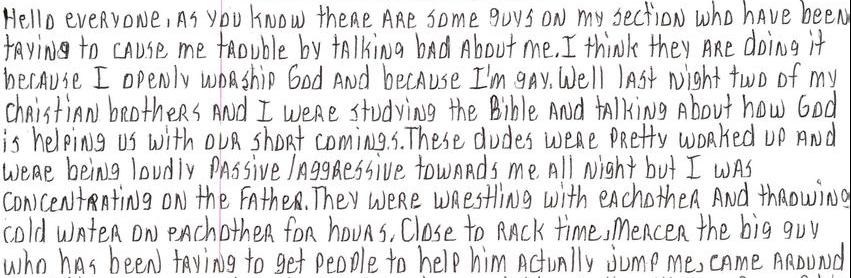 Hello everyone, As you know there are some guys on my section who have been
trying to cause me trouble by talking bad about me. I think they are doing it
because I openly worship God and because I'm gay. Well last night two of my
Christian brothers and I were studying the Bible and talking about how God
is helping us with our short comings. These dudes were pretty worked up and
were being loudly passive/aggressive towards me all night but I was
concentrating on the Father. They were wrestling with eachother and throwing
cold water on eachother for hours. Close to rack time, Mercer the big guy
who has been trying to get people to help him actually jump me, came around